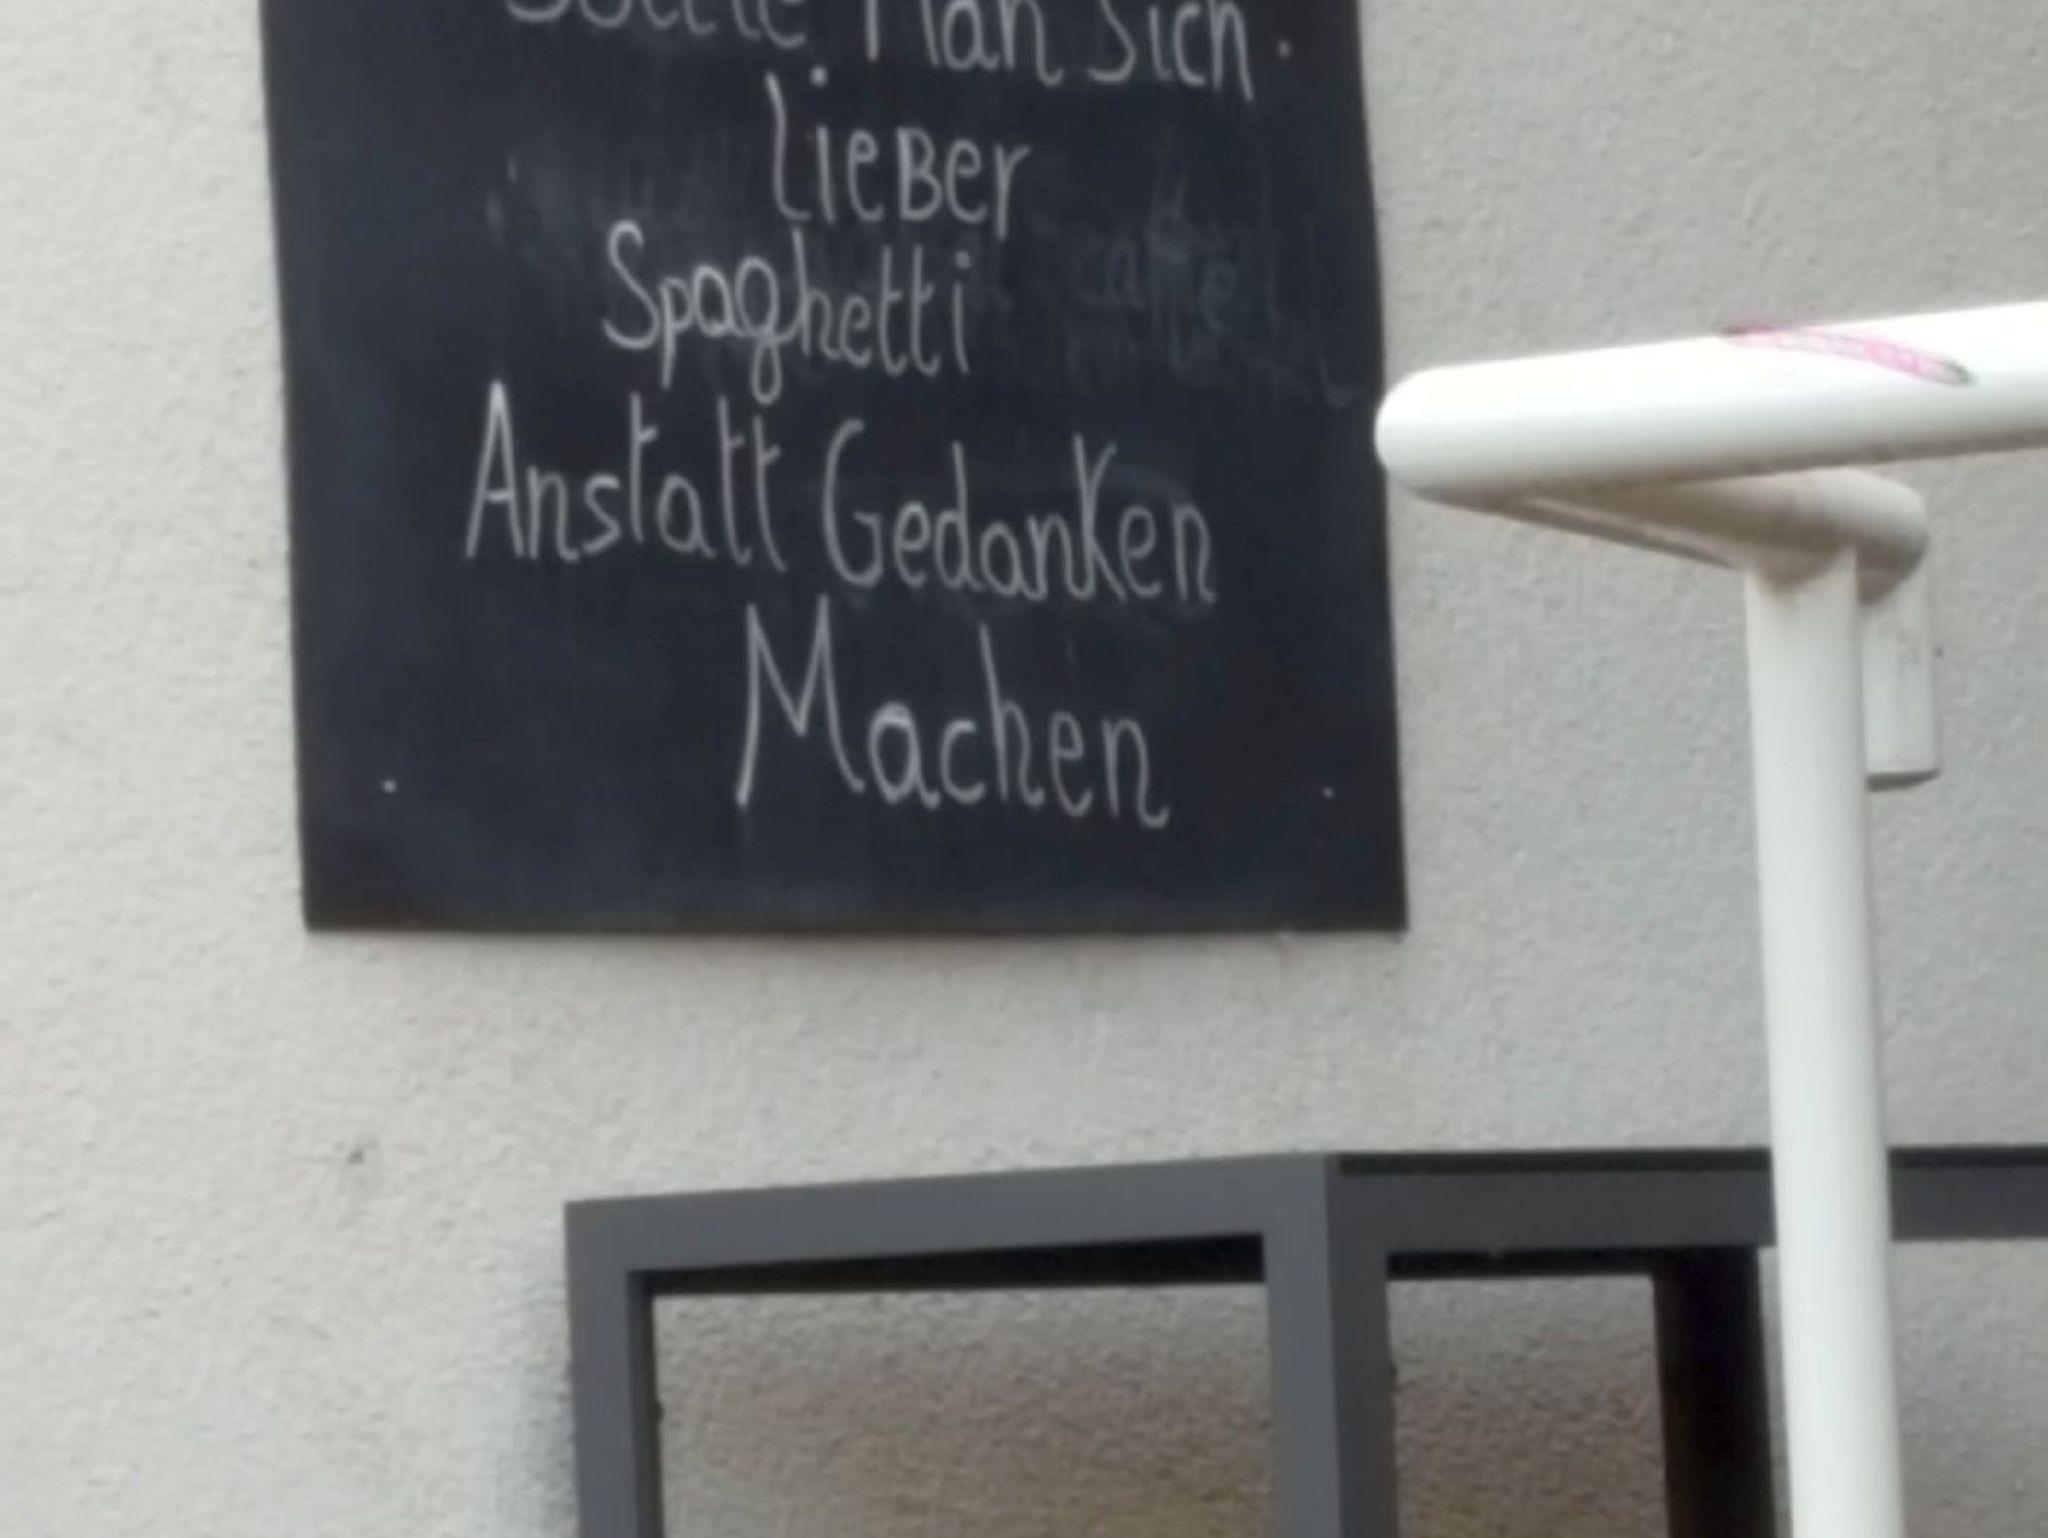 Sollte Man Sich
LieBer
Spaghetti
Anstatt GedanKen
Machen